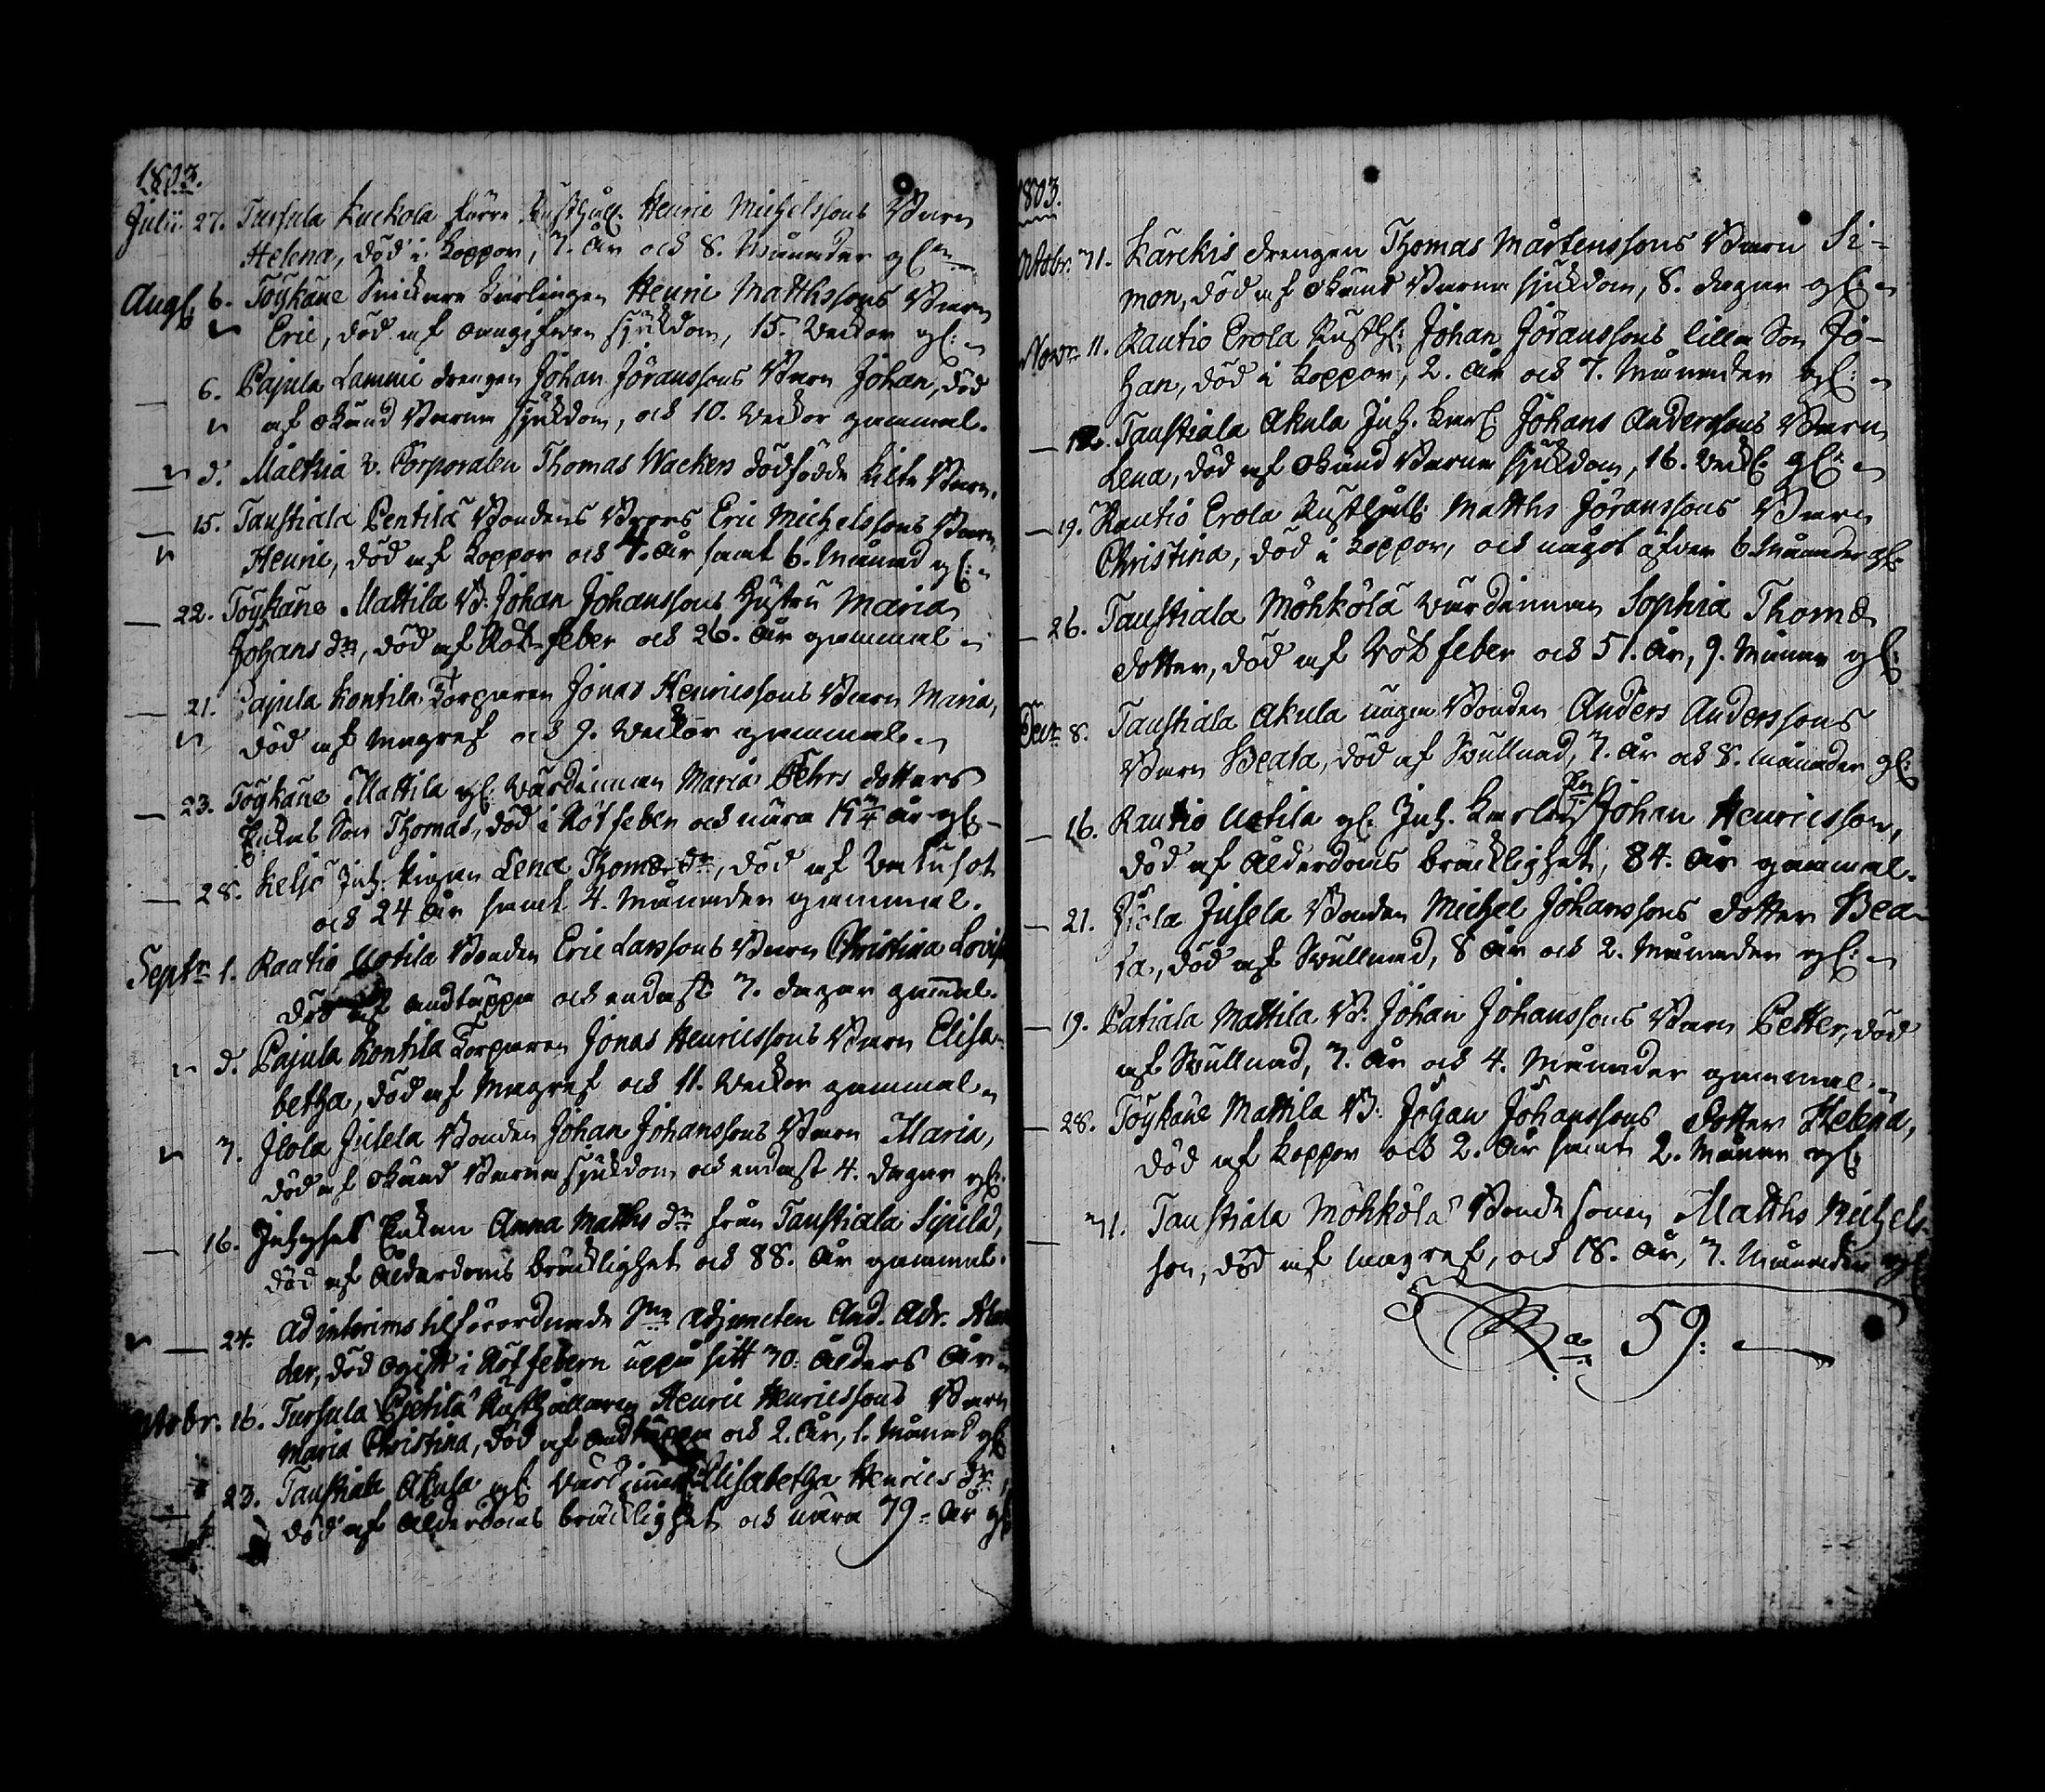 1803.
Julii 27. Tursula Kuckola förre Rusthåll. Henric Michelssons Barn
Helena, död i koppor, 7. år och 8. Månader gl.
Aug. 6. Töykäne Snickare Karlingen Henric Matthssons Barn
Eric, död af oangifven sjukdom, 15. Veckor gl:
6. Pajula Lammi drengen Johan Jöranssons Barn Johan, död
af okänd Barna sjukdom, och 10. Veckor gammal.
d. Mälkiä v. Corporalen Thomas Wackers dödfödde lilla Barn.
15. Taustiala Pentilä Bondens Brors Eric Michelssons Barn
Henric, död af koppor och 4. år samt 6. Månad gl:
22. Töykäne Mattila B: Johan Johanssons Hustru Maria
Johans dr, död af Röt-feber och 26. år gammal
21. Pajula Kontila Torparen Jonas Henricssons Barn Maria,
död af Magref och 9. Veckor gammal.
23. Töykäne Mattila gl. Värdinnan Maria Pehrs dotters
Enkas Son Thomas, död i Rötfeber och nära år gl.
28. Keljo Inh. Pigan Lena Thomæ dr, död af
och 24 år samt 4. Månader gammal.
Septr 1. Rautio Uotila Bonden Eric Larssons Barn Christina Lovisa
död af andtäppa och endast 7. dagar gammal.
d. Pajula Kontila Torparen Jonas Henricssons Barn Elisa-
betha, död af Magref och 11. Veckor gammal
7. Jlola Jusela Bonden Johan Johanssons Barn Maria,
död af okänd Barna sjukdom och endast 4. dagar gl.
16. Inhyses Enkan Anna Matths dr från Taustiala Sipilä,
död af Ålderdoms bräcklighet och 88. år gammal.
24. Ad interims tilförordnade Adjuncten And. Adr.
der, död ogift i Rötfebern uppå sitt 30. ålders år
Octobr. 16. Tursula Pietilä Rusthållaren Henric Henricssons Barn
Maria Christina, död af andtäppa och 2. år, 1. Månad gl.
23. Taustiala Akula gl. Värdinnan Elisabetha Henrics dr,
död af Ålderdoms bräcklighet och nära 79. år gl.
1803.
Octobr. 31. Karckis drengen Thomas Mårtenssons Barn Si-
mon, död af okänd Barna sjukdom, 8. dagar gl:
Novr 11. Rautio Erola Rusth. Johan Jöranssons lilla Son Jo-
han, död i koppor, 2. år och 7. Månader gl:
12. Taustiala Akula Inh. Karl. Johans Anderssons Barn
Lena, död af okänd Barna sjukdom, 16. Veck. gl:
19. Rautio Erola Rusthåll. Matths Jöranssons Barn
Christina, död i koppor, och något öfver 6 Månader gl.
26. Taustiala Möhkölä Värdinnan Sophia Thomæ
dotter, död af Rötfeber och 51. år, 9. Månar gl.
Decr 8. Taustiala Akula unga Bonden Anders Anderssons
Barn Beata, död af Svullnad, 7. år och 8. månader gl.
16. Rautio Uotila gl. Inh. Karlen Johan Henricsson,
död af Ålderdoms bräcklighet, 84. år gammal.
21. Jusela Bonden Michel Johanssons dotter Bea-
ta, död af Svullnad, 8 år och 2. Månader gl:
19. Patiala Mattila B: Johan Johanssons Barn Petter, död
af Svullnad, 7. år och 4. Månader gammal
28. Töykäne Mattila B: Johan Johanssons dotter Helena,
död af koppor och 2. år samt 2. Månar gl.
31. Taustiala Möhkölä Bonde sonen Matths Michels-
son, död af Magref, och 18. år, 7. Månader gl.
Sa 59.